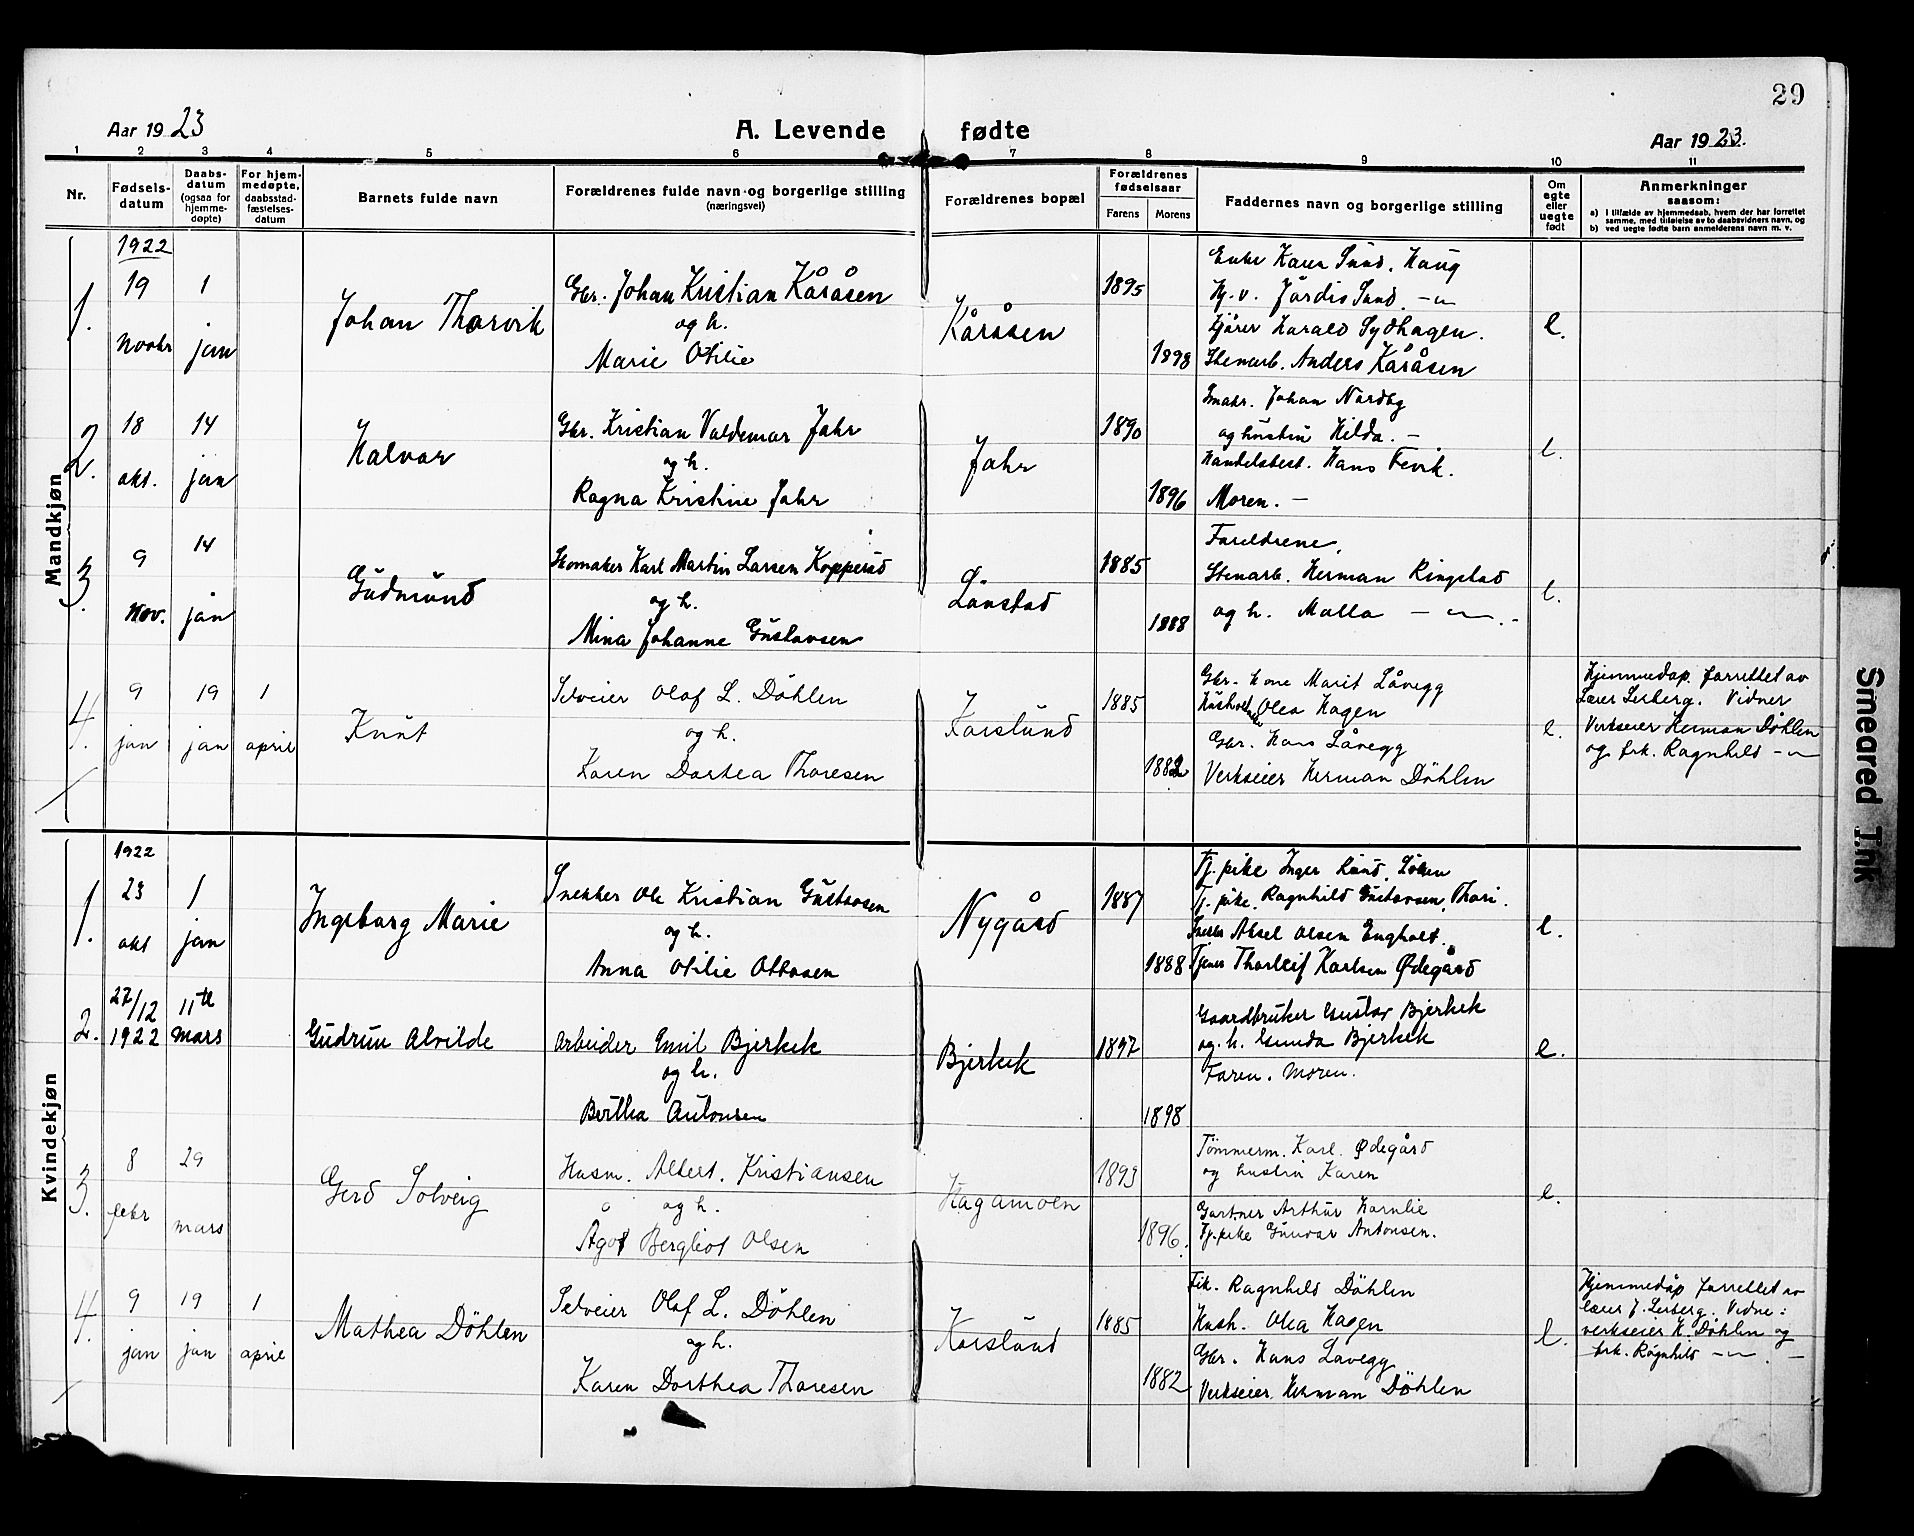 29
Aar 1923
A. Levende fødte
Aar 1923.
1 2 3 4 5 6 7 8 9 10 11
Nr.
Fødsels-
datum
Daabs-
datum
(ogsaa for
hjemme-
døpte)
For hjem-
medøpte,
daabsstad-
fæstelses-
datum
Barnets fulde navn
Forældrenes fulde navn og borgerlige stilling
(næringsvei)
Forældrenes bopæl
Forældrenes
fødselsaar
Farens Morens
Faddernes navn og borgerlige stilling
Om
egte
eller
uegte
født
Anmerkninger
saasom:
a) I tilfælde av hjemmedaab, hvem der har forrettet
samme, med tilføielse av to daabsvidners navn, og
b) ved uegte fødte barn anmelderens navn m. v.
Mandkjøn
1.
1922
19
Novbr
1
jan
Johan Thorvik
Gbr. Johan Kristian Kåråsen
og h.
Marie Otilie
Kåråsen
1895
1898
Enke Karen Sund. Haug
Hj. v. Jårdis Sund —"—
Kjører Harald Sydhagen.
Stenarb. Anders Kåråsen
e.
2.
18
okt.
14
jan
Halvor
Gbr. Kristian Valdemar Jahr
og h.
Ragna Kristine Jahr
Jahr
1890
1896
Smabr. Johan Nordby
og hustru Hilda. —
Handelsbest. Hans Fevik.
Moren. —
e.
3.
9
Nov.
14
jan
Gudmund
Skomaker Karl Martin Larsen Kopperud
og h.
Mina Johanne Gustavsen
Lånstad
1885
1888
Foreldrene,
Stenarb. Herman Ringstad
og h. Malla —"—.-
e.
4.
9
jan
19
jan
1
april
Knut
Selveier Olaf L. Döhlen
og h.
Karen Dortea Thoresen
Korslund
1885
1882
Gbr. kone Marit Låvegg
Olea Hagen
Gbr. Hans Låvegg
Verkseier Herman Döhlen
e.
Hjemmedøp. forrettet av
Lærer Lerberg. Vidner
Verkseier Herman Döhlen
og frk. Ragnhild —"—
Kvindekjøn
1.
1922
23
okt
1
jan
Ingeborg Marie
Snekker Ole Kristian Gustavsen
og h.
Anna Otilie Ottosen
Nygård
1887
1888
Tj. pike Inger Lund,
Tj. pike. Ragnhild Gustavsen, Thori.
Aksel Olsen Engholt.
Tjener Thorleif Karlsen Ødegård
e.
2.
27/12
1922
11te
mars
Gudrun Alvilde
Arbeider Emil Bjerkek
og h.
Bertha Antonsen
Bjerkek
1897
1898
Gaardbruker Gustav Bjerkek
og. h. Gunda Bjerkek
Faren. Moren.
e.
3.
8
febr
29
mars
Gerd Solveig
Husm. Albert. Kristiansen
og h.
Ågot Bergliot Olsen
Hagamoen
1893
1896.
Tömmerm. Karl. Ødegård
og hustru Karen
Gartner Arthur Hornlie
Tj. pike Gunvor Antonsen.
e.
4.
9
jan
19
jan
1
april
Mathea Döhlen
Selveier Olaf L. Döhlen
og h.
Karen Dorthea Thoresen
Korslund
1885
1882
Frk. Ragnhild Döhlen
Hush. Olea Hagen
Gbr. Hans Lavegg
Verkseier. Herman Döhlen
e.
Hjemmedöp forrettet av
lærer J. Lerberg. Vidne:
verkseier H. Döhlen og
frk. Ragnhild —"—.—
Smeared Ink